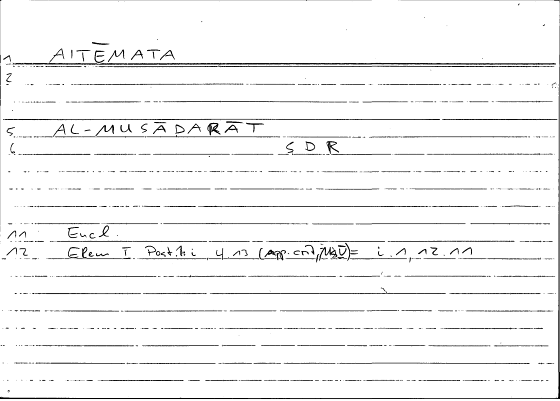 1 AITĒMATA
2
5 AL-MUṢĀDARĀT
6 ṢDR
11 Eucl.
12 Elem I Post. tit. 4.13 (app. crit.) = i.1, 12.11